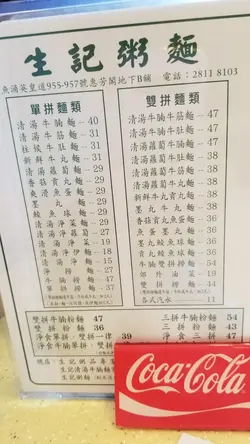 生記粥麵
魚涌英皇道955-957號惠芳閣地下B舖 電話：2811 8103
單拼麵類
清湯牛腩麵 40
清湯牛筋麵 31
柱候牛肚麵 31
新鮮牛丸麵 31
清湯蘿蔔麵 29
香菇貢丸麵 29
爽滑魚蛋麵 29
墨丸麵 29
鯪魚球麵 29
清湯淨菜 19
清湯淨伊麵 18
清湯淨麵 15
淨撈麵
牛腩撈麵 47
雙拼麵類
清湯牛腩牛筋麵 47
清湯牛腩牛肚麵 47
清湯蘿蔔牛腩麵 47
清湯蘿蔔牛筋麵 38
清湯蘿蔔牛肚麵 38
新鮮牛丸貢丸麵 38
墨丸牛丸麵 38
香菇貢丸魚蛋麵 38
墨丸魚蛋麵 38
墨丸鯪魚球麵 38
魚蛋鯪魚球麵 38
牛腩雙拼撈麵 54
郊外油菜 19
各式汽水 11
雙拼牛腩粉麵 47
雙拼粉麵 36
淨食單拼．雙拼一律 39
三拼牛腩粉麵 54
三拼粉麵 43
Coca-Cola